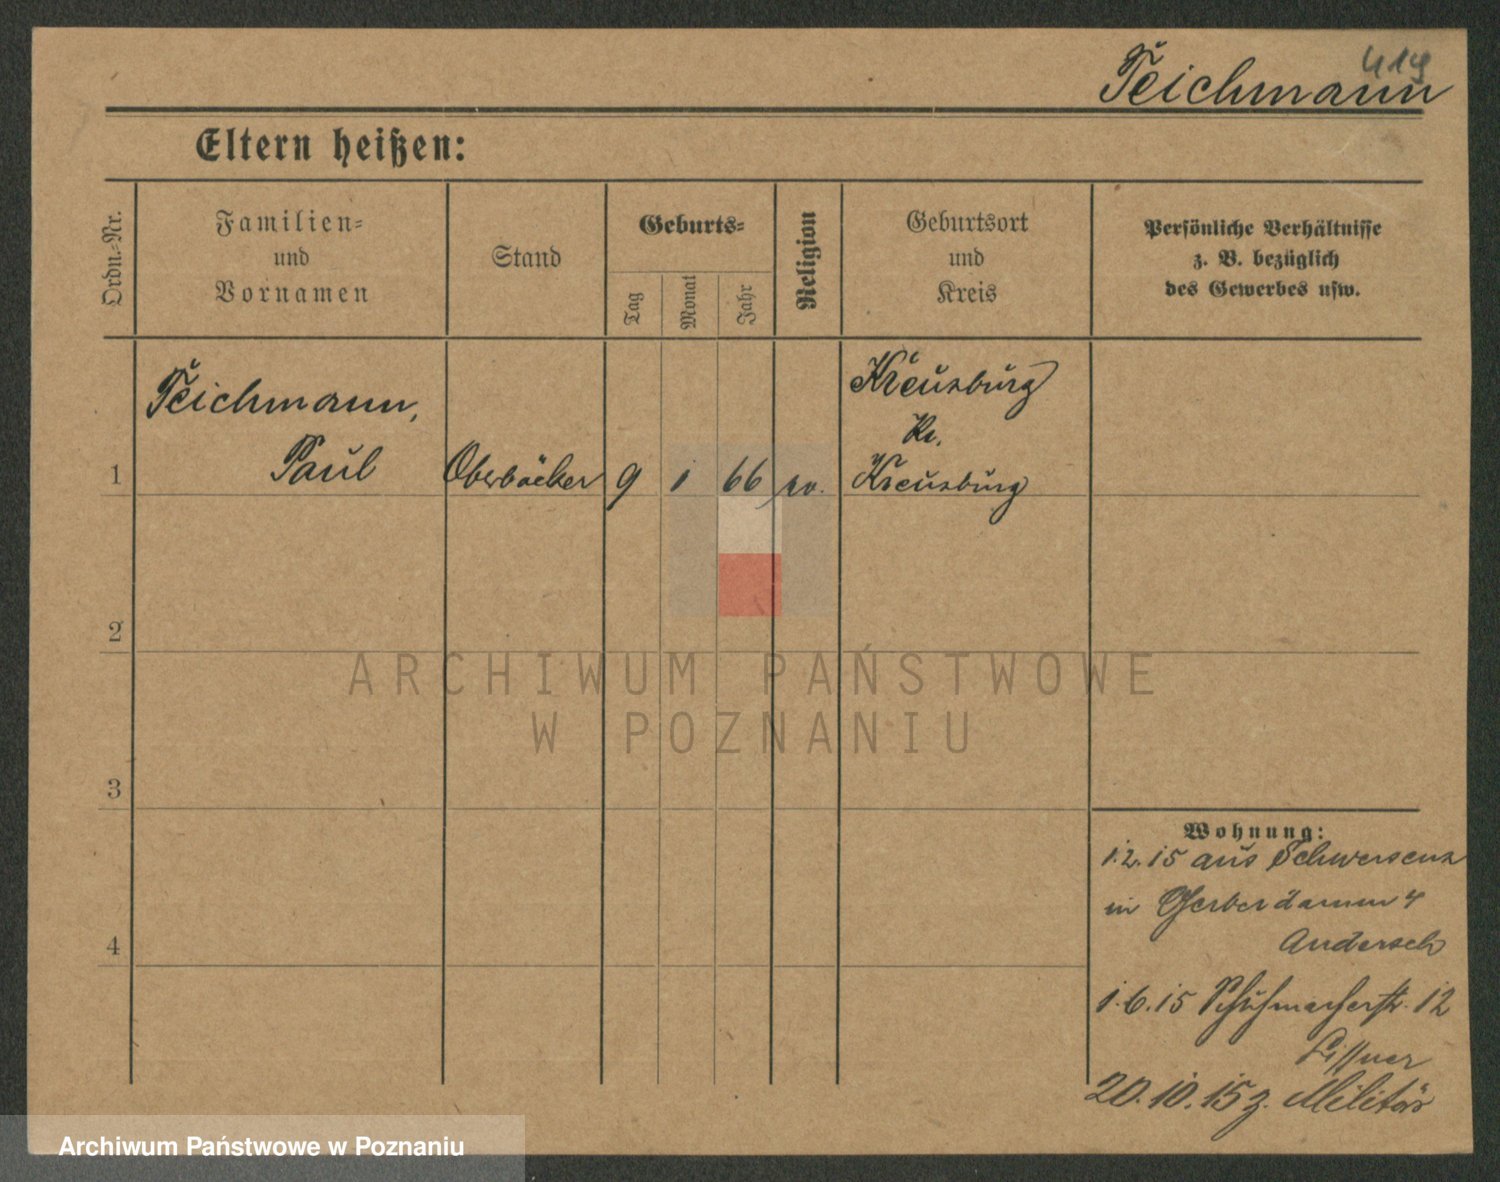 419
Teichmann
Eltern heißen:
Ordn.-Nr.
Familien-
und
Vornamen
Stand
Geburts-
Tag
Monat
Jahr
Religion
Geburtsort
und
Kreis
Persönliche Verhältnisse
z. B. bezüglich
des Gewerbes usw.
1
Teichmann,
Paul
Oberbäcker
9
1
66
ev.
Kreuzburg
Kr.
Kreuzburg
2
3
4
Wohnung:
1.2.15 aus Schwersenz
in Gerberdamm 4
Andersch
1.6.15 Schuhmacherstr. 12
Lissner
20.10.15 z. Militär
ARCHIWUM PAŃSTWOWE
W POZNANIU
Archiwum Państwowe w Poznaniu